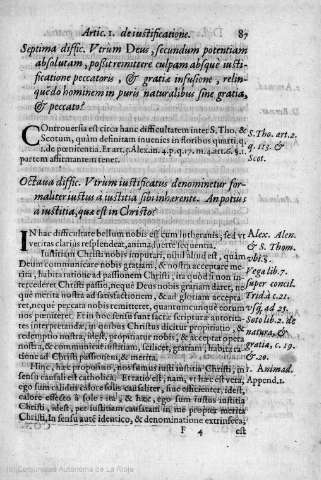 Artic. 1. de iustificatione. 87
Septima diffic. Vtrum Deus, secundum potentiam
absolutam, possit remittere culpam absque iusti-
ficatione peccatoris, & gratiæ infusione, relin-
quēdo hominem in puris naturalibus sine gratia,
& peccato?
COntrouersia est circa hanc difficultatem inter S. Tho. &
Scotum, quàm definitam inuenies in floribus quarti q.
1. de pœnitentia. Et art. 5. Alex. in. 4. p. q. 17. m. 4. art. 6. §. 1.
partem affirmantem tenet.
S. Tho. art. 2.
q. 113. &
Scot.
Octaua diffic. Vtrùm iustificatus denominetur for-
maliter iustus à iustitia sibi inhærente. An potius
à iustitia, quæ est in Christo?
IN hac difficultate bellum nobis est cum lutheranis, sed vt
veritas clarius resplendeat, animaduerte sequentia.
Iustitiam Christi nobis imputari, nihil aliud est, quàm
Deum communicare nobis gratiam, & nostra acceptare me-
rita, habita ratione ad passionem Christi, ita quod si non in-
tercederet Christi passio, neque Deus nobis gratiam daret, ne
que merita nostra ad satisfactionem, & ad gloriam accepta-
ret, neque peccata nobis remitteret, quantumcunque eorum
nos pœniteret. Et in hoc sensu sunt sacræ scripturæ autorita-
tes interpretandæ, in quibus Christus dicitur propitiatio, &
redemptio nostra, idest, propitiatur nobis, & acceptat opera
nostra, & communicat iustitiam, scilicet, gratiam, habita ra-
tione ad Christi passionem, & merita.
Alex. Alen.
& S. Thom.
vbi s.
Vega lib. 7.
super concil.
Trid. à c. 21.
vsq; ad 25.
Soto lib. 2. de
natura, &
gratia, c. 19.
& 20.
Hinc, hæc propositio, nos sumus iusti iustitia Christi, in
sensu causali est catholica. Et ratio est, nam, vt hæc est vera,
ego sum calidus calore solis causaliter, siue efficienter, idest,
calore effecto à sole: ita, & hæc, ego sum iustus iustitia
Christi, idest, per iustitiam causatam in me propter merita
Christi. In sensu autē identico, & denominatione extrinseca,
1. Animad.
Append. 1.
F 4 est
(c) Comunidad Autónoma de La Rioja